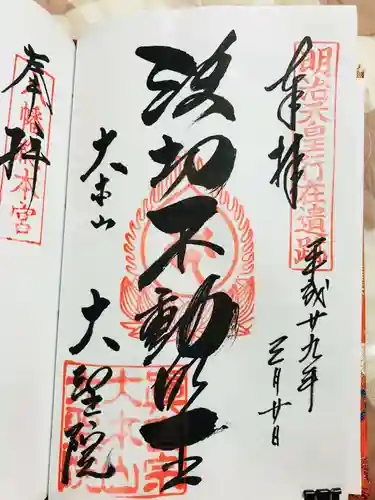 奉拝
明治天皇行在遺跡
平成廿九年
三月廿日
波切不動明王
大本山
大聖院
大本山
奉拝
八幡総本宮